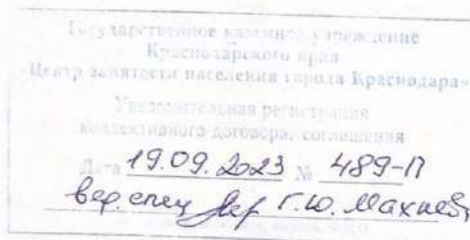 Государственное казенное учреждение
Краснодарского края
«Центр занятости населения города Краснодара»
Уведомительная регистрация
коллективного договора, соглашения
Дата 19.09.2023 № 489-П
вед. спец Г.Ю.